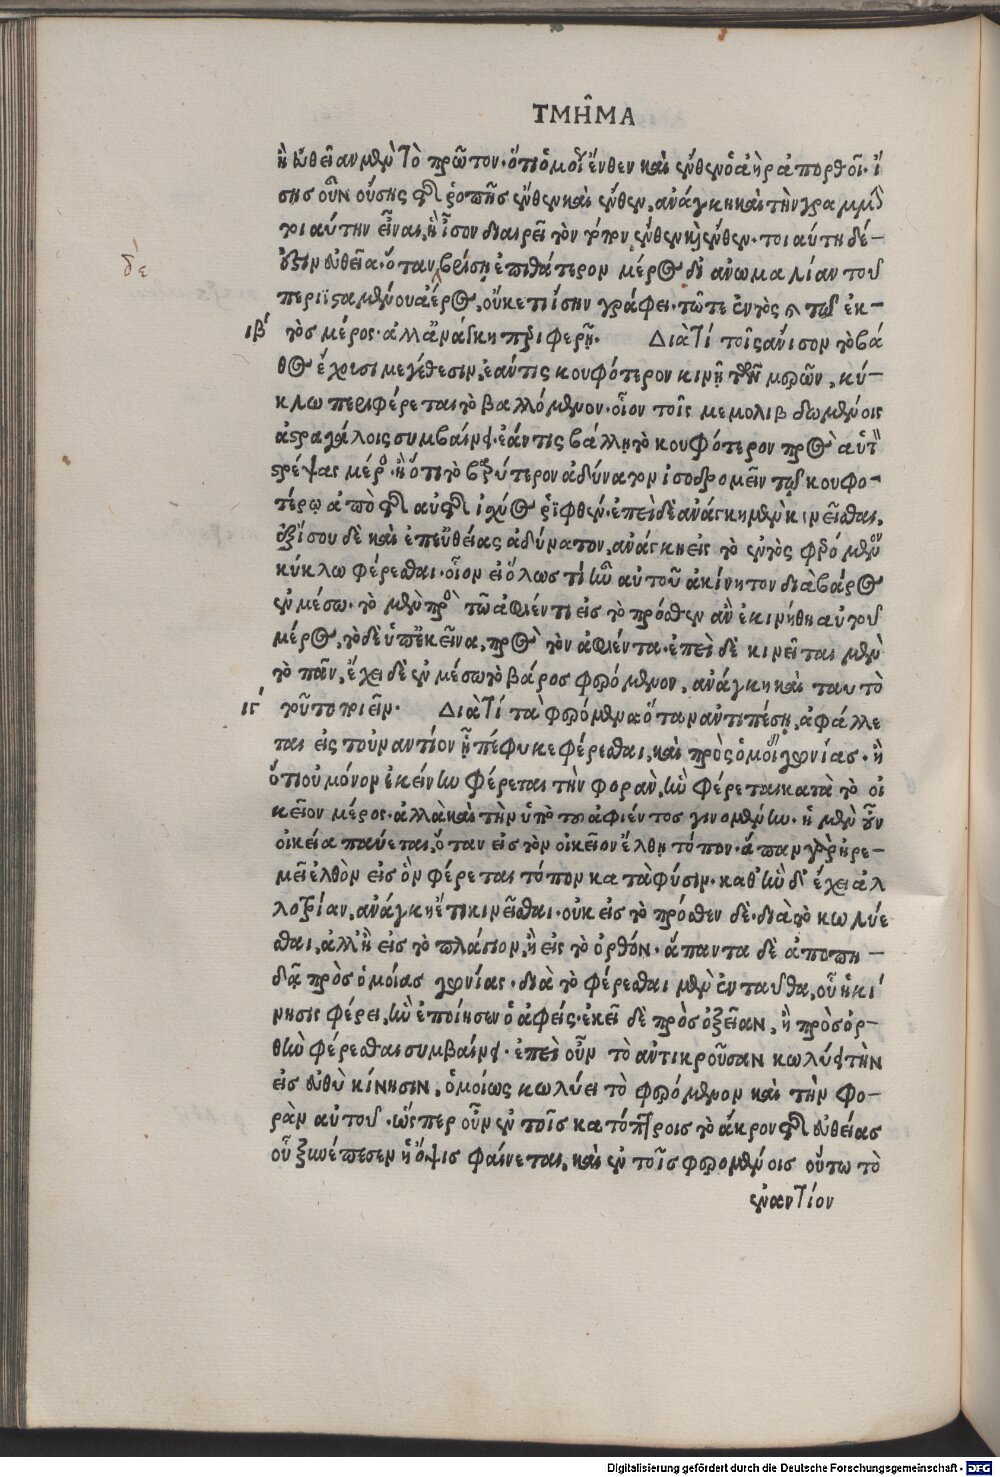 ΤΜΗ͂ΜΑ
ἢ εὐθεῖαν μὲν τὸ πρῶτον· ὅτι ὁμοί ἔνθεν καὶ ἔνθεν ὁ ἀὴρ ἀπορθοῖ· ἴ
σης οὖν οὔσης τῆς ῥοπῆς ἔνθεν καὶ ἔνθεν, ἀνάγκη καὶ τὴν γραμμὴν
τοιαύτην εἶναι, ἣ ἴσον διαιρεῖ τὸν τόπον ἔνθεν κὶ ἔνθεν· τοιαύτη δέ–
ἐϛιν εὐθεῖα· ὅταν βρίσῃ ἐπιθάτερον μέρος δι ἀνωμαλίαν τοῦ
δέ
περιϊϛαμένου ἀέρος, οὐκέτι ἴσην γράφει· τῶτε ἐντὸς ἢ τῶ ἐκ–
ιβ´ τὸς μέρος· ἀλλ' ἀνάγκη περιφερῆ. Διὰ τί τοῖς ἄνισον τὸ βά
θος ἔχουσι μεγέθεσιν, ἐάντις κουφότερον κινῇ τῶν μερῶν, κύ–
κλω περιφέρεται τὸ βαλλόμενον· οἷον τοῖς μεμολιβδωμένοις
ἀϛραγάλοις συμβαίνει· ἐάντις βάλλῃ τὸ κουφότερον πρὸς αὑτ
ϛρέψας μέρος· ἢ ὅτι τὸ βαρύτερον ἀδύνατον ἰσοδρομεῖν τῶ κουφο–
τέρῳ ἀπὸ τῆς αὐτῆς ἰσχύος ῥϊφθέν· ἐπεὶ δὲ ἀνάγκη μὲν κινεῖσθαι,
ἐξίσου δὲ καὶ ἐπ' εὐθείας ἀδύνατον, ἀνάγκη εἰς τὸ ἐντὸς φερόμενον
κύκλω φέρεσθαι· οἷον εἰ ὅλως τί ἦν αὐτοῦ ἀκίνητον διὰ βάρος
ἐν μέσω· τὸ μὲν πρὸς τῶ ἀφιέντι εἰς τὸ πρόσθεν ἂν ἐκινήθη αὐτοῦ
μέρος, τὸ δὲ ὑπ' ἔκεῖνα, πρὸς τὸν ἀφιέντα· ἐπεὶ δὲ κινεῖται μὲν
τὸ πᾶν, ἔχει δὲ ἐν μέσω τὸ βάρος φερόμενον, ἀνάγκη καὶ ταυτὸ
ιγ´ τοῦτο ποιεῖν. Διὰ τί τὰ φερόμενα ὅταν ἀντιπέσῃ, ἀφάλλε
ται εἰς τοὐναντίον ᾗ πέφυκε φέρεσθαι, καὶ πρὸς ὁμοί γωνίας· ἢ
ὅτι οὐ μόνον ἐκείνην φέρεται τὴν φορὰν, ἣν φέρεται κατὰ τὸ οἰ
κεῖον μέρος· ἀλλὰ καὶ τὴν ὑπὸ τοῦ ἀφιέντος γινομένην· ἡ μὲν οὖν
οἰκεία παύεται, ὅταν εἰς τὸν οἰκεῖον ἔλθῃ τόπον· ἅπαν γὰρ ἠρε–
μεῖ ἐλθὸν εἰς ὃν φέρεται τόπον κατὰ φύσιν· καθ' ἣν δ' ἔχει ἀλ
λοτρίαν, ἀνάγκη ἔτι κινεῖσθαι· οὐκ εἰς τὸ πρόσθεν δὲ· διὰ τὸ κωλύε
σθαι, ἀλλ' ἢ εἰς τὸ πλάγιον, ἢ εἰς τὸ ὀρθόν· ἅπαντα δὲ ἀποπη –
δᾷ πρὸς ὁμοίας γωνίας· διὰ τὸ φέρεσθαι μὲν ἐνταῦθα, οὗ ἡ κί
νησις φέρει, ἣν ἐποίησεν ὁ ἀφείς· ἐκεῖ δὲ πρὸς ὀξεῖαν, ἢ πρὸς ὀρ–
θὴν φέρεσθαι συμβαίνει· ἐπεὶ οὖν τὸ αὐτικροῦσαν κωλύει τὴν
εἰς εὐθὺ κίνησιν, ὁμοίως κωλύει τὸ φερόμενον καὶ τὴν φο–
ρὰν αὐτοῦ· ὥςπερ οὖν ἐν τοῖς κατόπτροις τὸ ἄκρον τῆς εὐθείας
οὗ ξυνέπεσεν ἡ ὄψις φαίνεται, καὶ ἐν τοῖς φερομένοις οὕτω τὸ
ἐναντίον
Digitalisierung gefördert durch die Deutsche Forschungsgemeinschaft - DFG